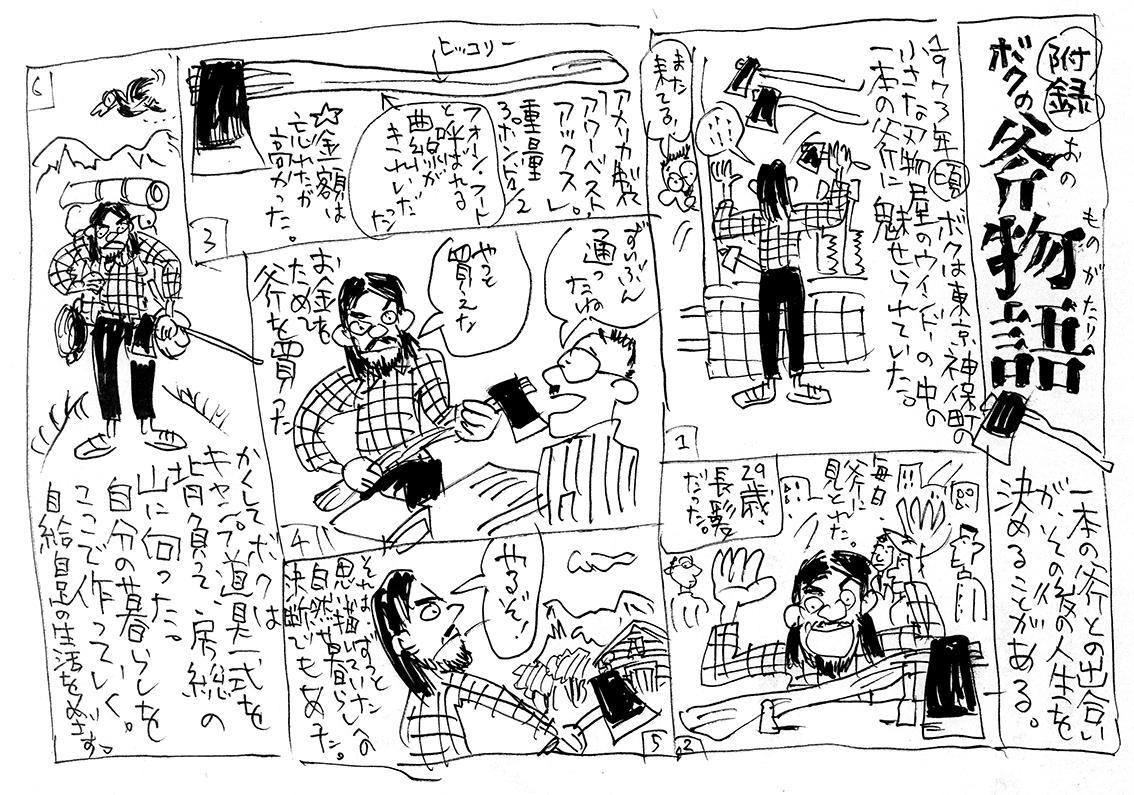 附録
ボクの斧物語
おの
ものがたり
一本の斧との出合い
が、その後の人生を
決めることがある。
ボクは東京神保町の
小さな刃物屋のウインドーの中の
一本の斧に魅せられていた。
また
来てる!
1
毎日、
斧に
見とれた。
29歳、
長髪
だった。
2
ヒッコリー
アメリカ製
アックス。
重量
3ポンド1/2
フォン・フート
と呼ばれる
曲線が
きれいだ
った
☆金額は
忘れたが
高かった。
3
ずいぶん
通ったね
やっと
買えた
お金を
ためて
斧を買った
4
やるぞ!
それは、ずっと
思い描いていた
自然暮らしへの
決断でもあった。
5
かくしてボクは
キャンプ道具一式を
背負って、房総の
山に向った。
自分の暮らしを
ここで作っていく。
自給自足の生活をめざす。
6